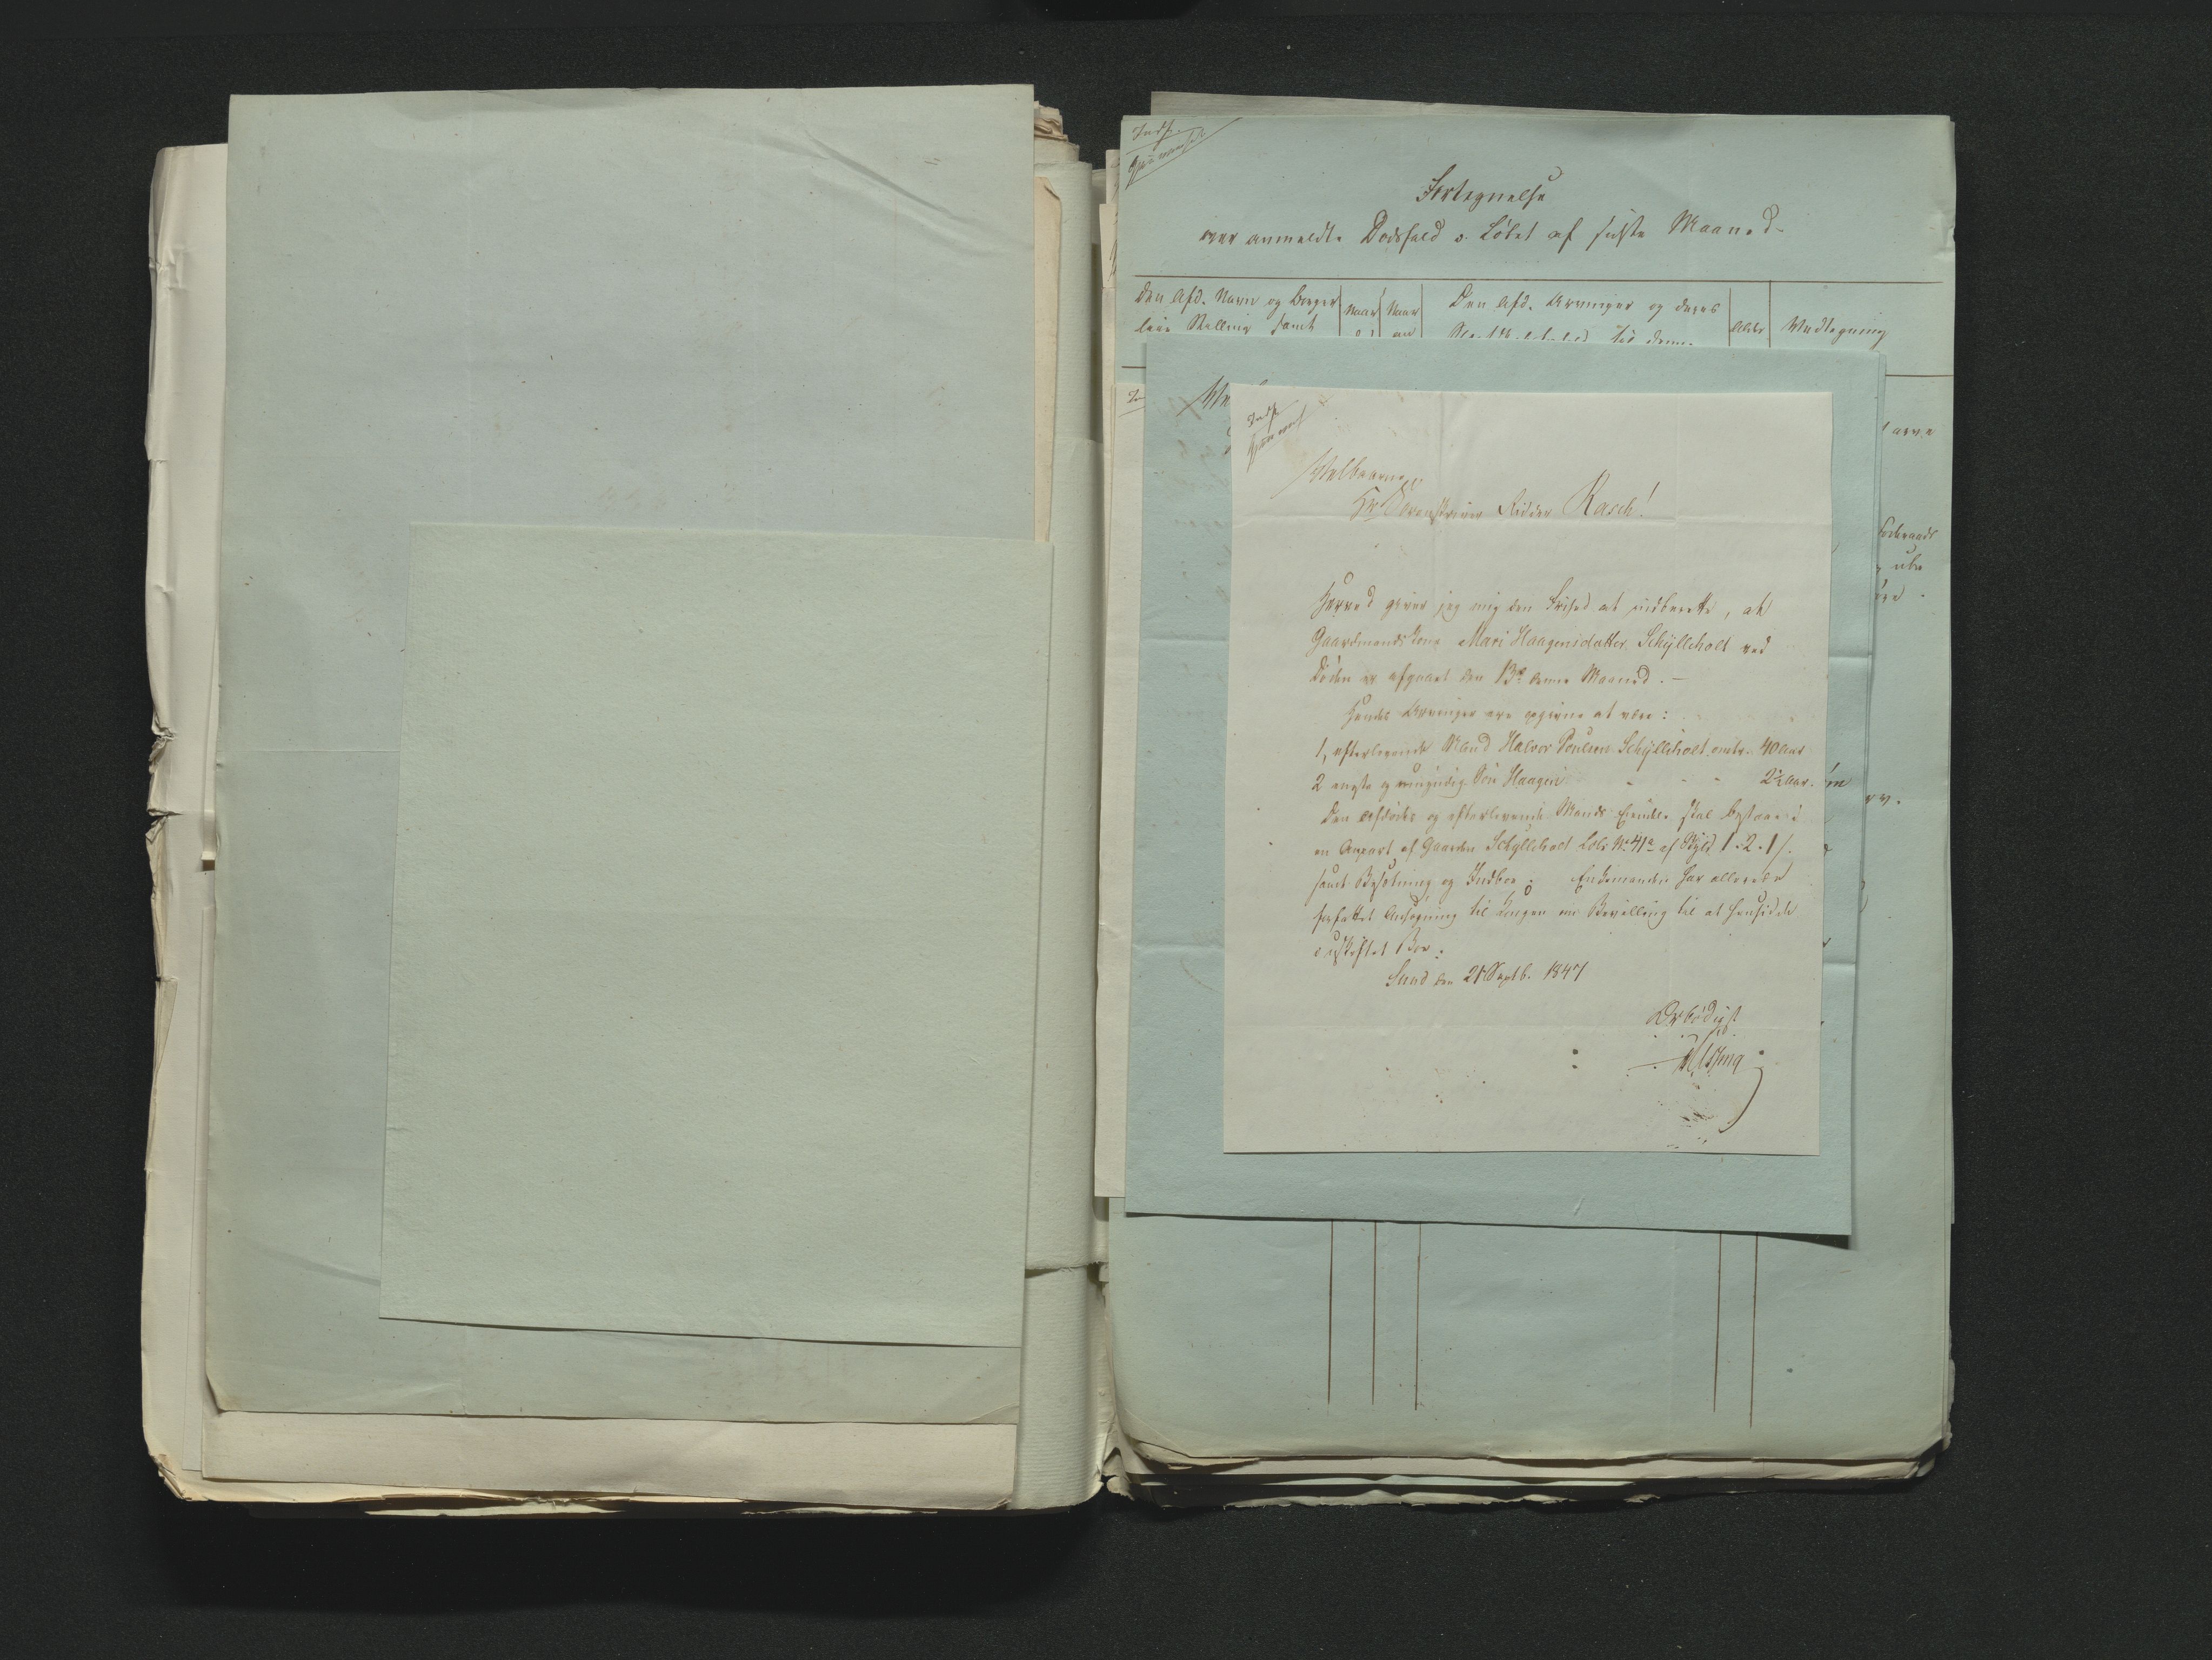 Indf.
Fortegnelse
over anmeldte Dødsfald i Løbet af sidste Maaned
Den Afd. Navn og borger
lige Stilling samt
Naar
Naar
Den Afd. Arvinger og deres
til denne
Alder
Anmærkning
Indf.
Velbaarne
Hr Sorenskriver Ridder Rasch!
Herved giver jeg mig den Frihed at indberette, at
Gaardmandskone Mari Haagensdatter Schÿlleholt ved
Døden er afgaaet den 13de denne Maaned. –
Hendes Arvinger ere opgivne at være:
1, efterlevende Mand Halvor Poulsen Schÿlleholt omtr. 40 Aar
2 eneste og umyndig Søn Haagen - - - 2½ Aar.
Den afdødes og efterlevende Mands Eiendele skal bestaae i
en Anpart af Gaarden Schÿlleholt Løb: No 41a af Skyld 1. 2. 1 /.
samt Besætning og Indboe; Enkemanden har allerede
forfattet Ansøgning til Kongen om Bevilling til at hensidde
i uskiftet Boe.
Sund den 21 Septb. 1847
Ærbødigst